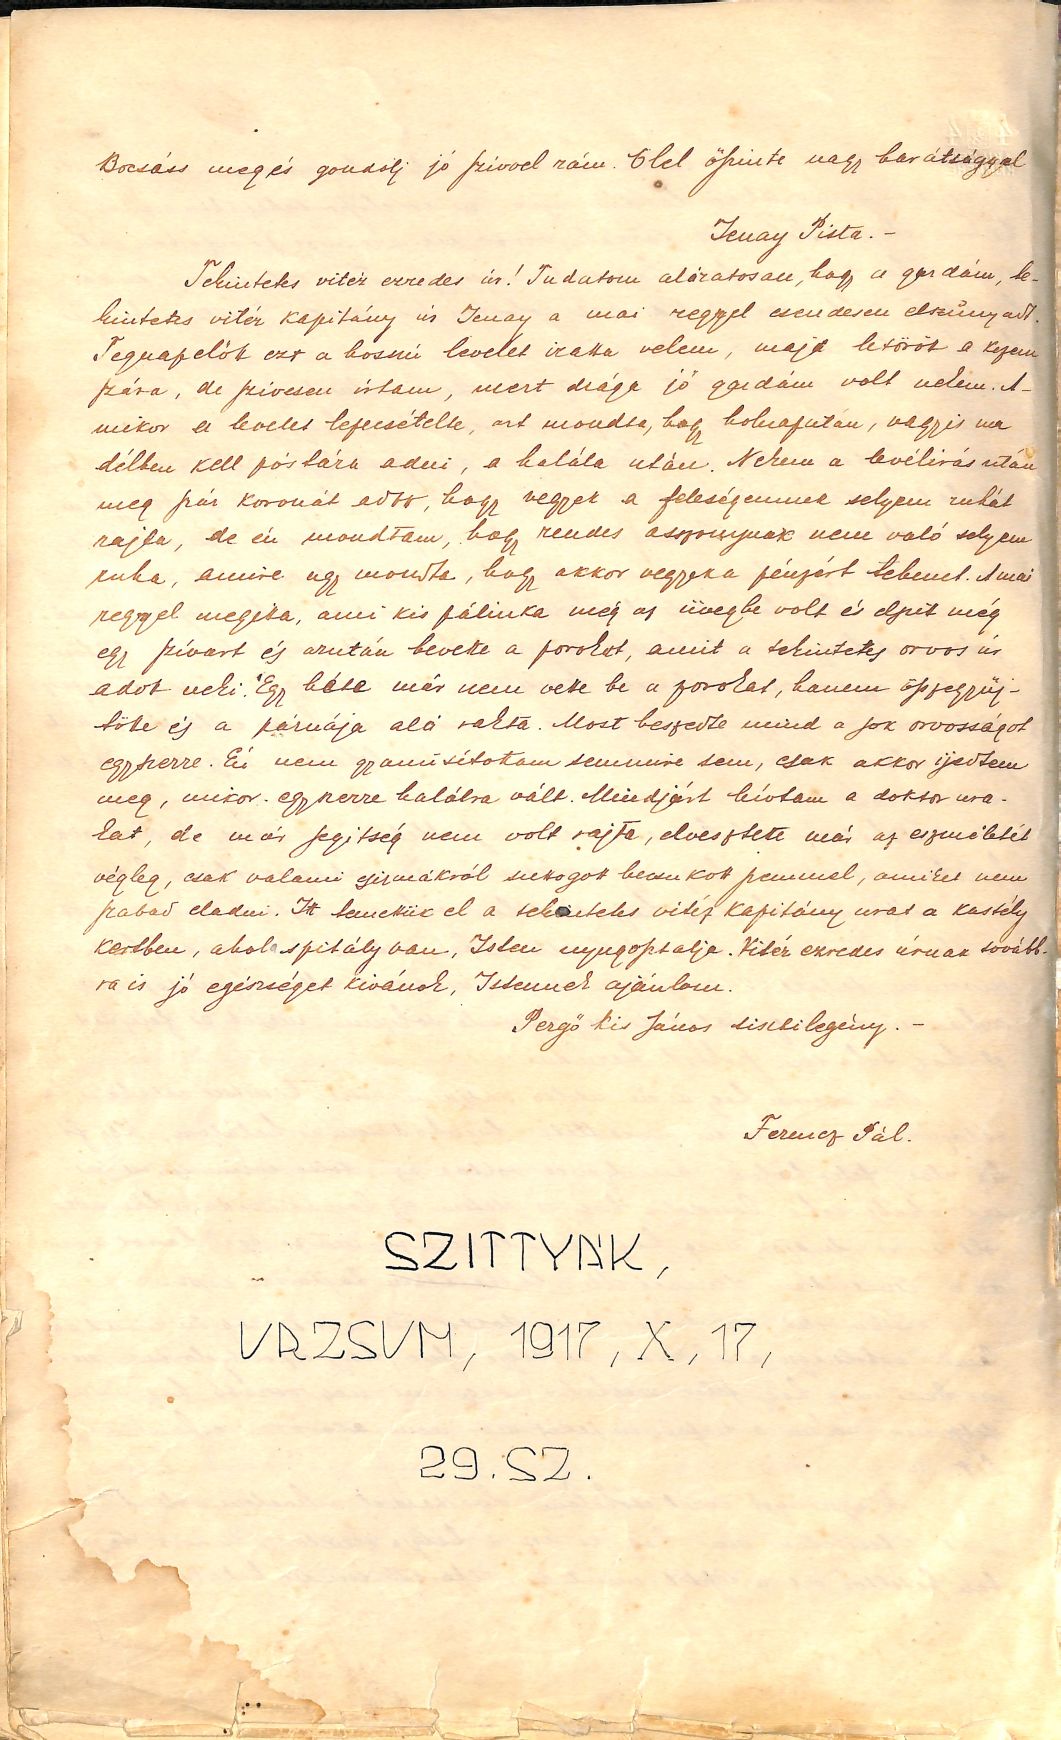 Bocsáss meg és gondolj jó szívvel rám. Ölel őszinte nagy barátsággal
Jenay Pista. -
Tekintetes vitéz ezredes úr! Tudatom alázatosan, hogy a gazdám, te-
kintetes vitéz kapitány úr Jenay a mai reggel csendesen elszűnyadt.
Tegnapelőt ezt a hosszú levelet iratta velem, majd letöröt a kezem
szára, de szívesen írtam, mert drága jó gazdám volt nekem. A-
mikor a levelet lepecsételte, azt mondta, hogy holnaputan, vagyis ma
délben kell póstára adni, a halála után. Nekem a levélirás után
meg pár koronát adott, hogy vegyek a feleségemnek selyem ruhát
rajta, de én mondtam, hogy rendes asszonynak nem való selyem
ruha, amire ugy mondta, hogy akkor vegyek a pénzért tehenet. A mai
reggel megitta, ami kis pálinka még az üvegbe volt és elszít még
egy szívart és azután bevette a porokat, amit a tekintetes orvos úr
adot neki. Egy hete már nem vette be a porokat, hanem öszegyüj-
tötte és a párnája alá rakta. Most beszedte mind a sok orvosságot
egyszerre. Én nem gyanúsítottam semmire sem, csak akkor ijedtem
meg, mikor egyszerre halálra vált. Mindjárt hívtam a doktor ura-
kat, de már segitség nem volt rajta, elvesztette már az eszméletét
végleg, csak valami csizmákról suttogot becsukot szemmel, amiket nem
szabad eladni. Itt temettük el a tekintetes vitéz kapitány urat a kastély
kertben, ahol a spitály van, Isten nyugosztalja. Vitéz ezredes úrnak tovább-
ra is jó egészséget kivánok, Istennek ajánlom.
Pergő Kis János tisztilegény. -
Ferencz Pál.
SZITTYÁK,
URZSUM, 1917, X, 17,
29. SZ.